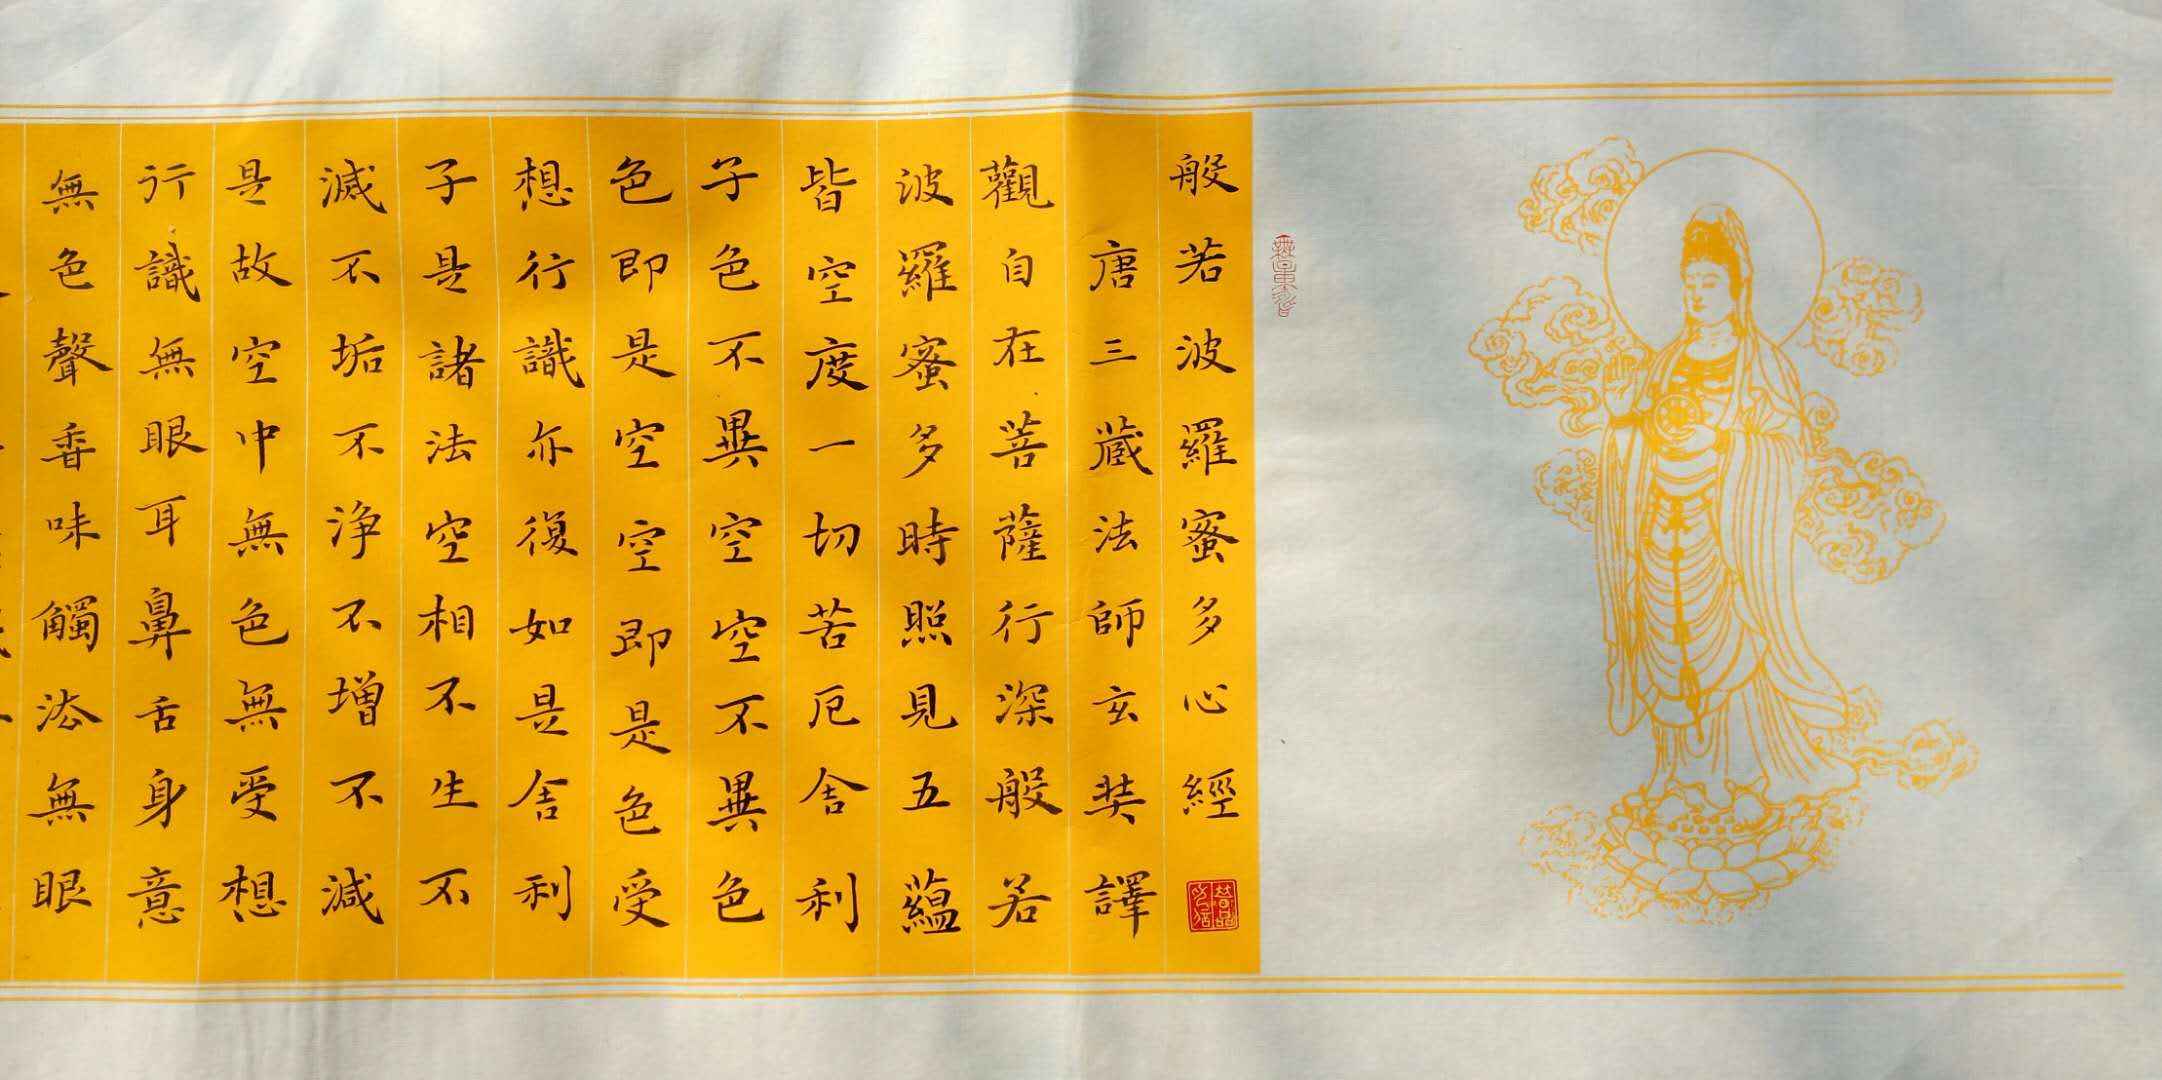 般若波羅蜜多心經
唐三藏法師玄奘譯
觀自在菩薩行深般若
波羅蜜多時照見五蘊
皆空度一切苦厄舍利
子色不異空空不異色
色即是空空即是色受
想行識亦復如是舍利
子是諸法空相不生不
滅不垢不淨不增不減
是故空中無色無受想
行識無眼耳鼻舌身意
無色聲香味觸法無眼